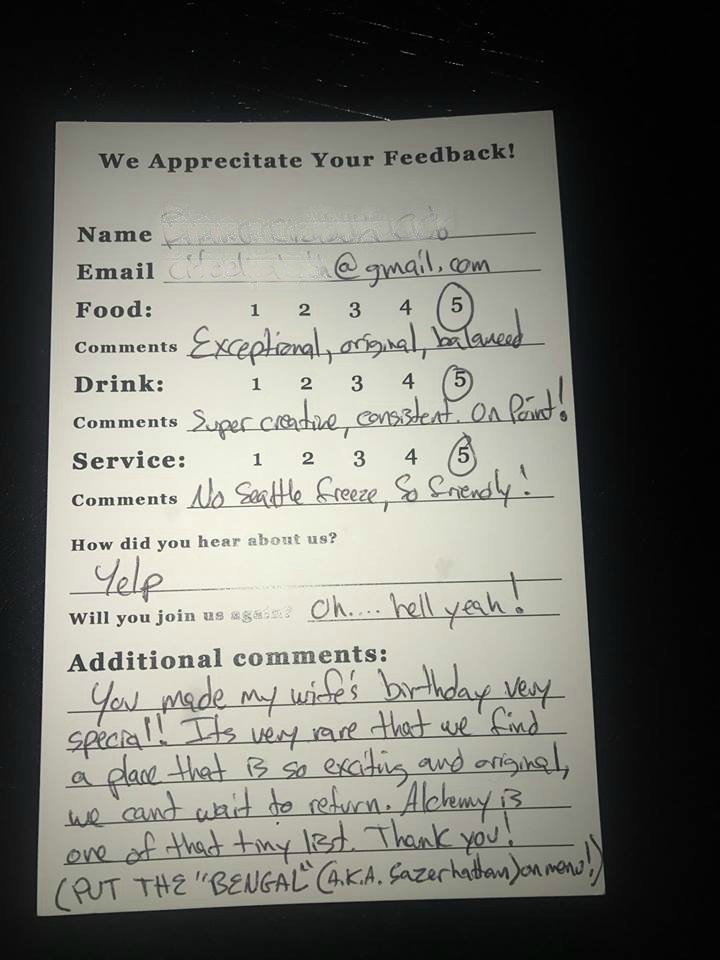 We Apprecitate Your Feedback!
Name
Email @gmail.com
Food: 1 2 3 4 5
Comments Exceptional, original, balanced
Drink: 1 2 3 4 5
Comments Super creative, consistent. On Point!
Service: 1 2 3 4 5
Comments No Seattle freeze, So friendly!
How did you hear about us?
Yelp
Will you join us again? Oh.... hell yeah!
Additional comments:
You made my wife's birthday very
special!! Its very rare that we find
a place that is so exciting and original,
we cant wait to return. Alchemy is
one of that tiny list. Thank you!
(PUT THE "BENGAL" (A.K.A. Sazerhattan) on menu!)